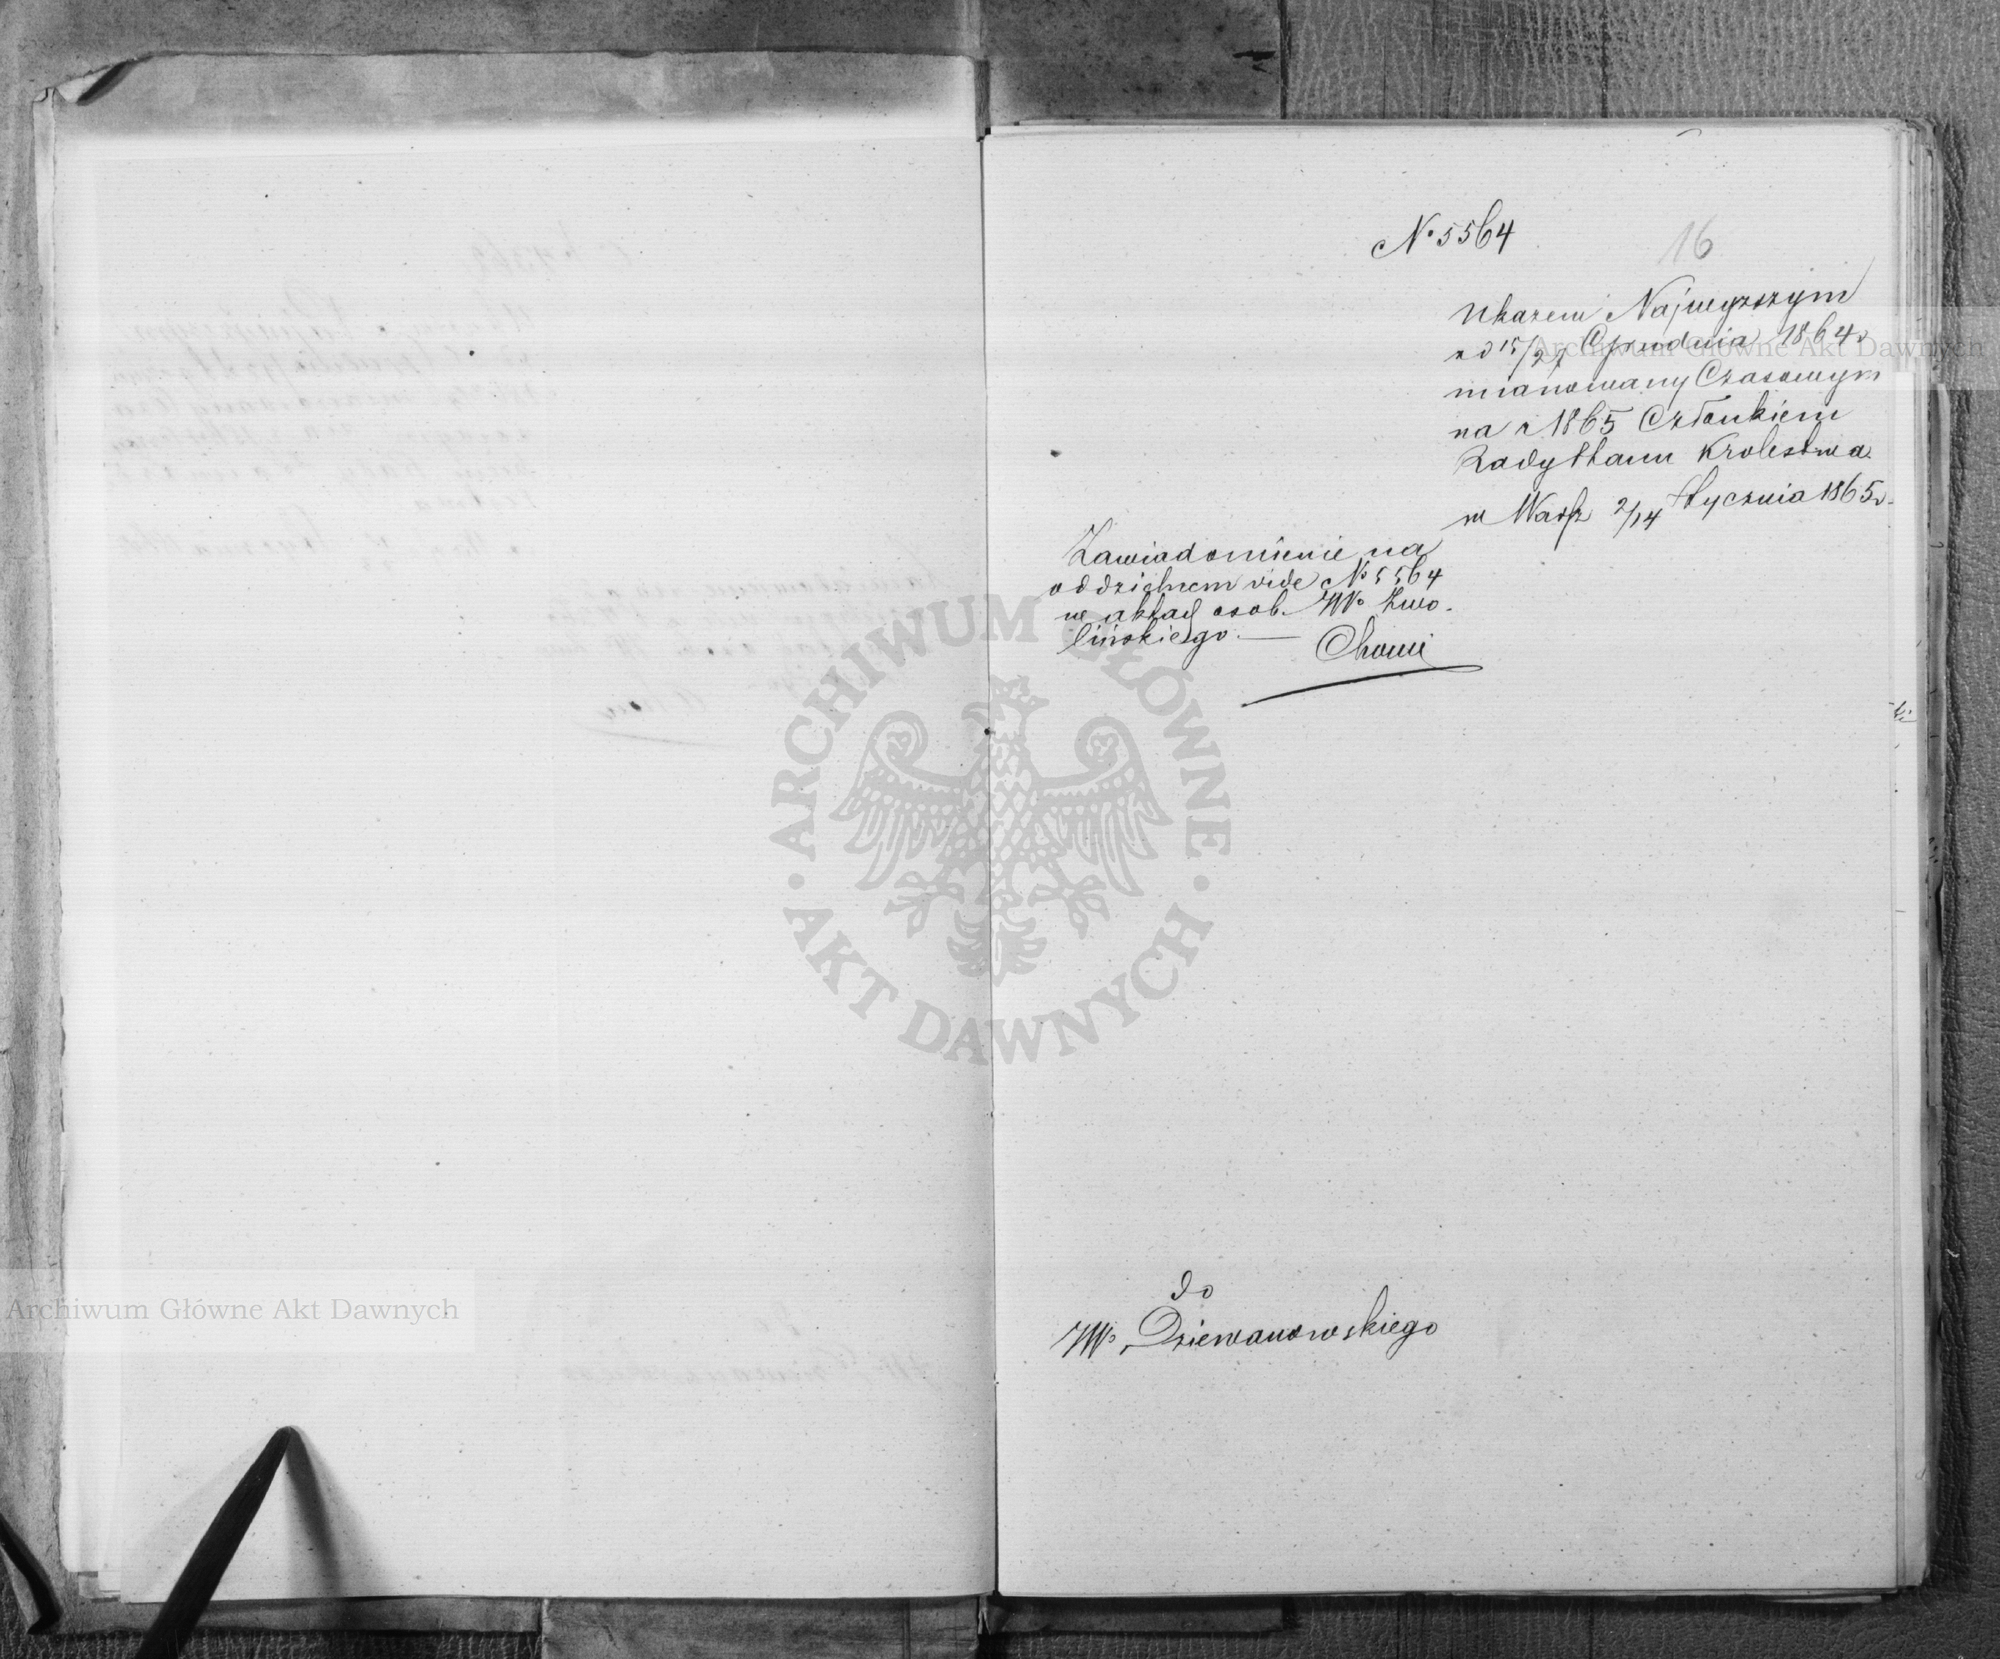 No 5564
16
Ukazem Najwyższym
z d 15/27 Grudnia 1864 r
mianowany Czasowym
na r 1865 Członkiem
Rady Stanu Krolestwa
w Warsz 2/14 Stycznia 1865 r.
Zawiadomienie na
oddzielnem vide No 5564
w aktach osob. JWo Zwo-
lińskiego.
do
JWo Dziewanowskiego
ARCHIWUM GŁÓWNE
AKT DAWNYCH
Archiwum Główne Akt Dawnych
Archiwum Główne Akt Dawnych